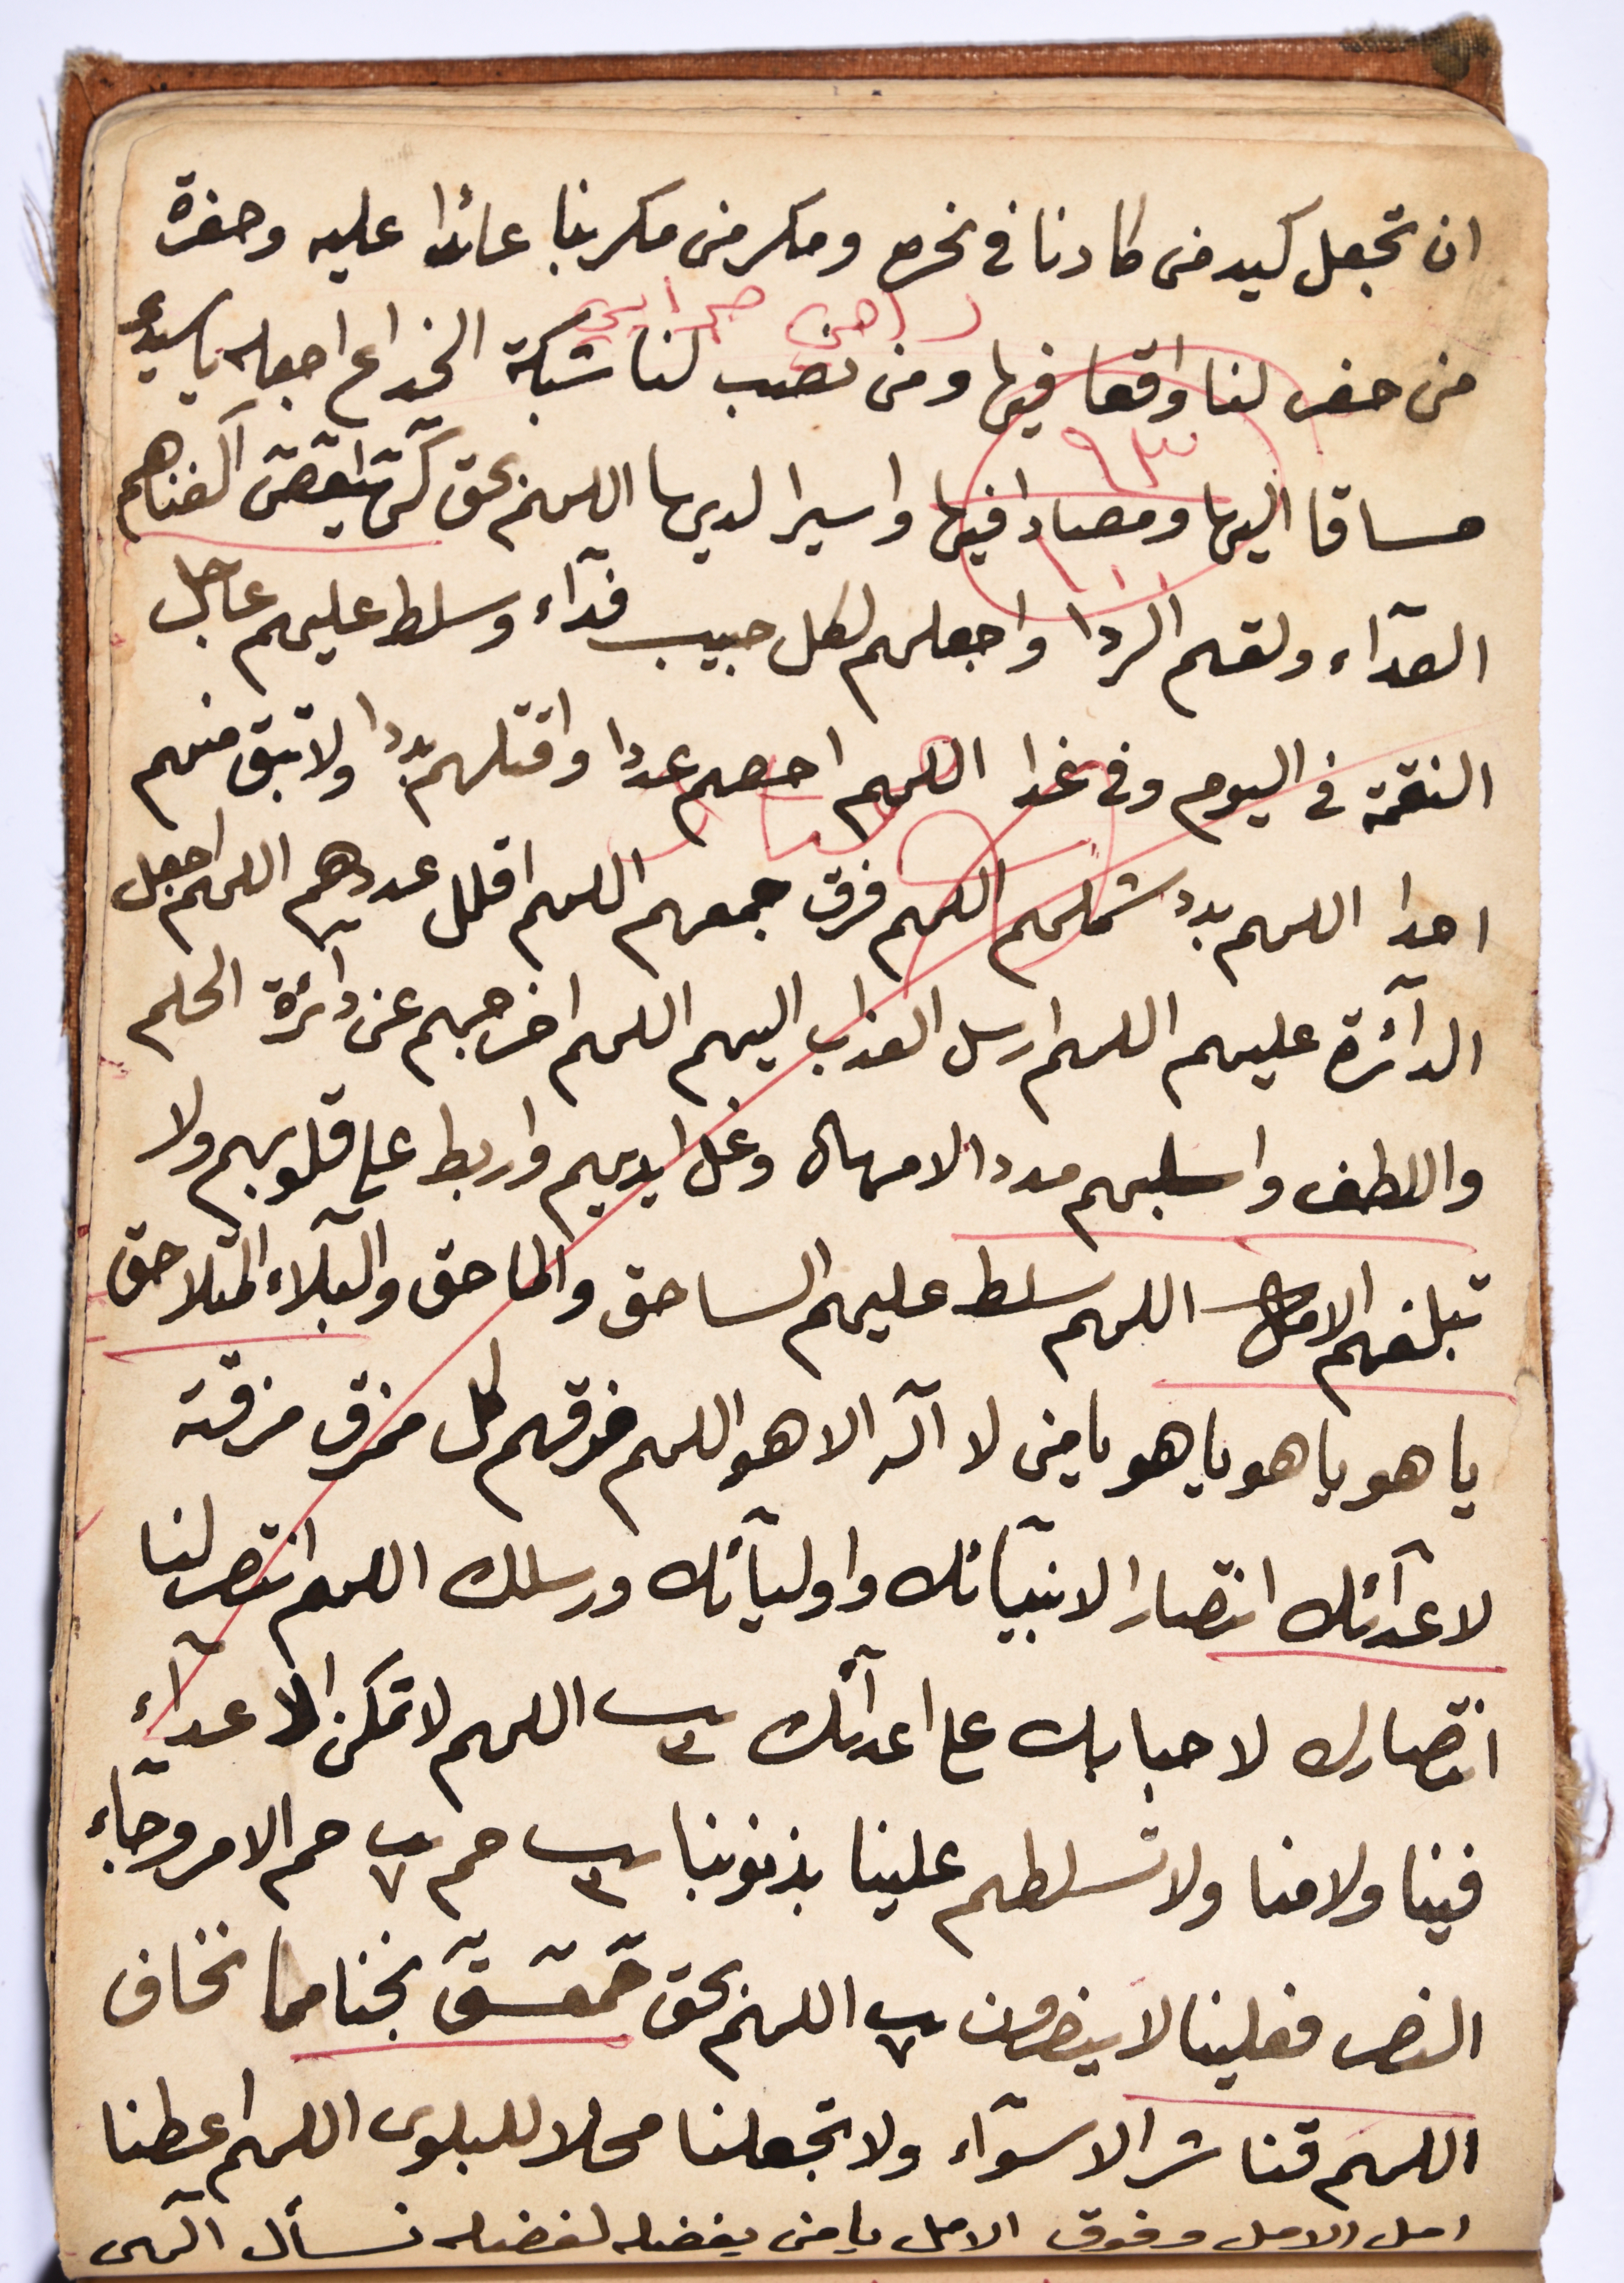 ان تجعل كيد من كادنا في نحره ومكر من مكر بنا عائدا عليه وحفرة
من حفر لنا واقعا فيها ومن نصب لنا شبكة الخداع اجعله ياسيدى
مساقا اليها ومصادا فيها واسيرا لديها اللهم بحق كهيعص اكفناهم
العدآء ولقهم الردا واجعلهم لكل حبيب فدآء وسلط عليهم عاجل
النقمة في اليوم وفي غدا اللهم احصهم عددا واقتلهم بددا ولا تبق منهم
احدا اللهم بدد شملهم اللهم فرق جمعهم اللهم اقلل عددهم اللهم اجعل
الدآئرة عليهم اللهم ارسل العذاب اليهم اللهم اخرجهم عن دآئرة الحلم
واللطف واسلبهم مدد الامهال وغل ايديهم واربط على قلوبهم ولا
تبلغهم الامال اللهم سلط عليهم الساحق والماحق والبلآء المتلاحق
يا هو يا هو يا هو يا من لا اله الا هو اللهم مزقهم كل ممزق مزقته
لاعدآئك انتصارا لانبيآئك واوليآئك ورسلك اللهم انتصر لنا
انتصارك لاحبابك على اعدآئك ٣ اللهم لا تمكن الاعدآء
فينا ولا منا ولا تسلطهم علينا بذنوبنا ٣ حم ٧ حم الامر وجآء
النصر فعلينا لا ينصرون ٧ اللهم بحق حمعسق نجنا مما نخاف
اللهم قنا شر الاسوآء ولا تجعلنا محلا للبلوى اللهم اعطنا
امل الامل وفوق الامل يا من بفضله لفضله نسأل الهى